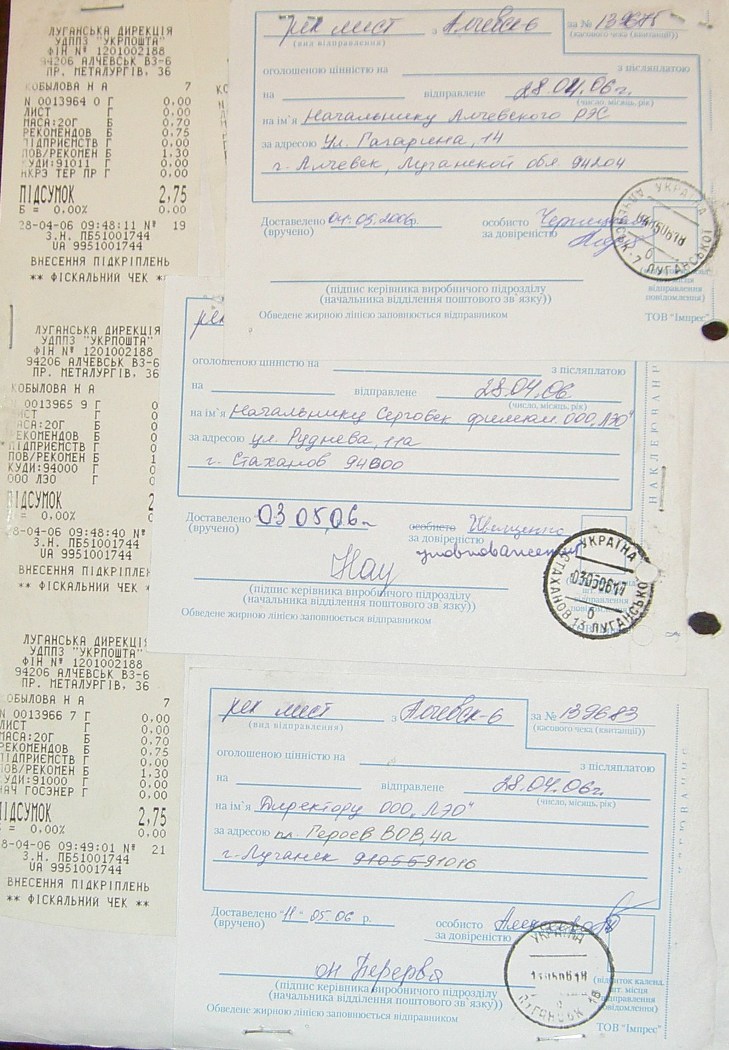 ЛУГАНСЬКА ДИРЕКЦІЯ
УДППЗ "УКРПОШТА"
ФІН № 1201002188
94206 АЛЧЕВСЬК ВЗ-6
ПР. МЕТАЛУРГІВ, 36
КОБЫЛОВА Н А 7
N 0013964 0 Г 0,00
ЛИСТ Г 0,00
МАСА:20Г Б 0,70
РЕКОМЕНДОВ Б 0,75
ПІДПРИЄМСТВ Г 0,00
ПОВ/РЕКОМЕН Б 1,30
КУДИ:91011 Г 0,00
НКРЗ ТЕР ПР Г 0,00
ПІДСУМОК 2,75
Б = 0,00% 0,00
28-04-06 09:48:11 № 19
З.Н. ПБ51001744
UA 9951001744
ВНЕСЕННЯ ПІДКРІПЛЕНЬ
** ФІСКАЛЬНИЙ ЧЕК **
ЛУГАНСЬКА ДИРЕКЦІЯ
УДППЗ "УКРПОШТА"
ФІН № 1201002188
94206 АЛЧЕВСЬК ВЗ-6
ПР. МЕТАЛУРГІВ, 36
КОБЫЛОВА Н А
0013965 9 Г 0
ИСТ Г 0
АСА:20Г Б 0
ЕКОМЕНДОВ Б 0
ПІДПРИЄМСТВ Г 0
ПОВ/РЕКОМЕН Б 1
КУДИ:94000 Г 0
ООО ЛЭО Г 0
ПІДСУМОК 2
= 0,00% 0
8-04-06 09:48:40 №
З.Н. ПБ51001744
UA 9951001744
ВНЕСЕННЯ ПІДКРІПЛЕН
** ФІСКАЛЬНИЙ ЧЕК *
ЛУГАНСЬКА ДИРЕКЦІ
УДППЗ "УКРПОШТА"
ФІН № 1201002188
94206 АЛЧЕВСЬК ВЗ-6
ПР. МЕТАЛУРГІВ, 36
ОБЫЛОВА Н А 7
N 0013966 7 Г 0,00
ЛИСТ Г 0,00
МАСА:20Г Б 0,70
РЕКОМЕНДОВ Б 0,75
ПІДПРИЄМСТВ Г 0,00
ПОВ/РЕКОМЕН Б 1,30
КУДИ:91000 Г 0,00
НАЧ ГОСЭНЕР Г 0,00
ПІДСУМОК 2,75
= 0,00% 0,00
8-04-06 09:49:01 № 21
З.Н. ПБ51001744
UA 9951001744
ВНЕСЕННЯ ПІДКРІПЛЕНЬ
** ФІСКАЛЬНИЙ ЧЕК **
рек лист з Алчевск-6 за № 139675
(вид відправлення) (касового чека (квитанції))
оголошеною цінністю на з післяплатою
на відправлене 28.04.06г.
(число, місяць, рік)
на ім'я Начальнику Алчевского РЭС
за адресою ул. Гагарина, 14
г. Алчевск, Луганской обл 94204
Доставлено 04.05.2006г. особисто
(вручено) за довіреністю
УКРАЇНА
ЛУГАНСЬКОЇ
(підпис керівника виробничого підрозділу
(начальника відділення поштового зв'язку))
Обведене жирною лінією заповнюється відправником ТОВ "Імпрес"
рек
оголошеною цінністю на з післяплатою
на відправлене 28.04.06
(число, місяць, рік)
на ім'я Начальнику Серговск. филиала ООО "ЛЭО"
за адресою ул. Руднева, 11а
г. Стаханов 94000
НАКЛЕЮВАН
Доставлено 03 05.06г. особисто
(вручено) за довіреністю
УКРАЇНА
03050617
б
СТАХАНОВ 13 ЛУГАНСЬКО
(підпис керівника виробничого підрозділу
(начальника відділення поштового зв'язку))
Обведене жирною лінією заповнюється відправником
рек лист з Алчевск-6 за № 139683
(вид відправлення) (касового чека (квитанції))
оголошеною цінністю на з післяплатою
на відправлене 28.04.06г.
(число, місяць, рік)
на ім'я Директору ООО "ЛЭО"
за адресою пл. Героев ВОВ, 4а
г. Луганск 91055 91016
Доставлено "11" 05.06 р. особисто
(вручено) за довіреністю
УКРАЇНА
ЛУГАНСЬК 18
(підпис керівника виробничого підрозділу
(начальника відділення поштового зв'язку))
Обведене жирною лінією заповнюється відправником ТОВ "Імпрес"